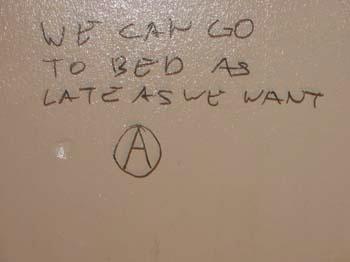 WE CAN GO
TO BED AS
LATE AS WE WANT
A